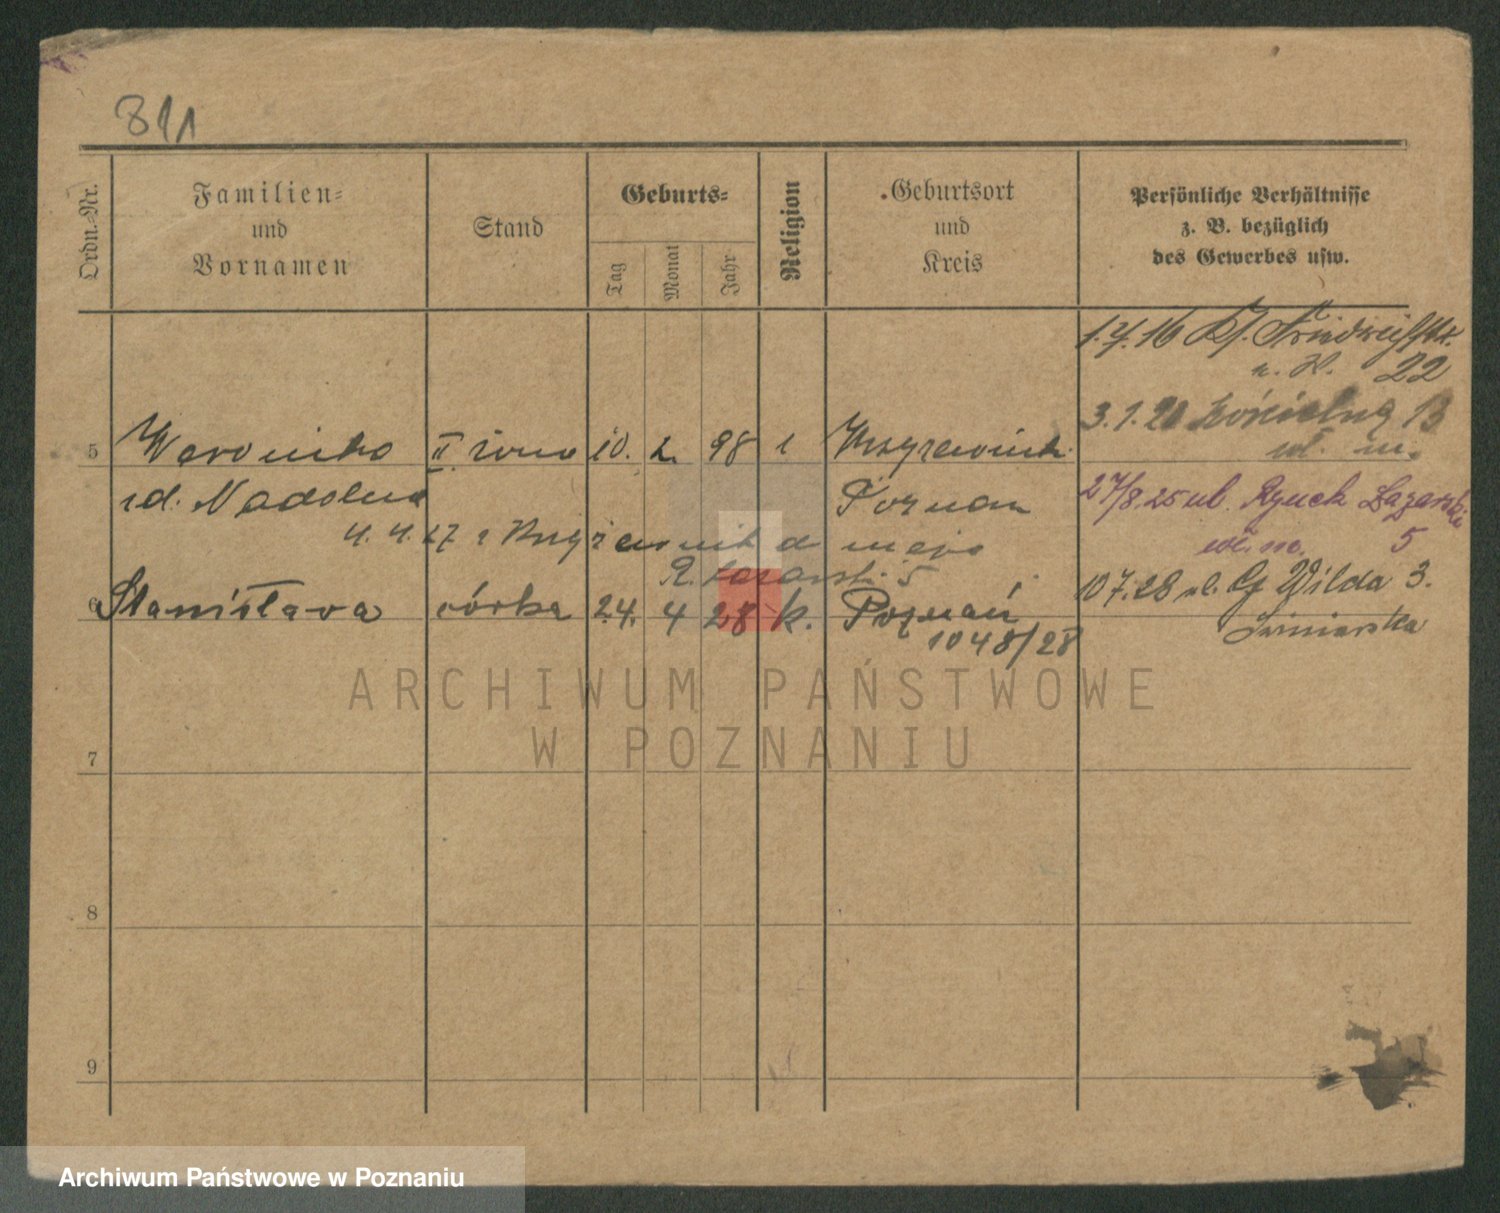 811
Ordn.-Nr.
Familien-
und
Vornamen
Stand
Geburts-
Tag
Monat
Jahr
Religion
Geburtsort
und
Kreis
Persönliche Verhältnisse
z. B. bezüglich
des Gewerbes usw.
1.4.16
22
3.1.20 Kościelna 13
wł. m.
5 Weronika II żona 10. 2. 98
27/8.25 ul. Rynek Łazarski
wł. m. 5
Nadolna Poznań
4.4.27
R. Łazarski 5
10 7.28 ul. G Wilda 3.
6 Stanisława córka 24. 4 28 k. Poznań
1048/28
ARCHIWUM PAŃSTWOWE
W POZNANIU
7
8
9
Archiwum Państwowe w Poznaniu